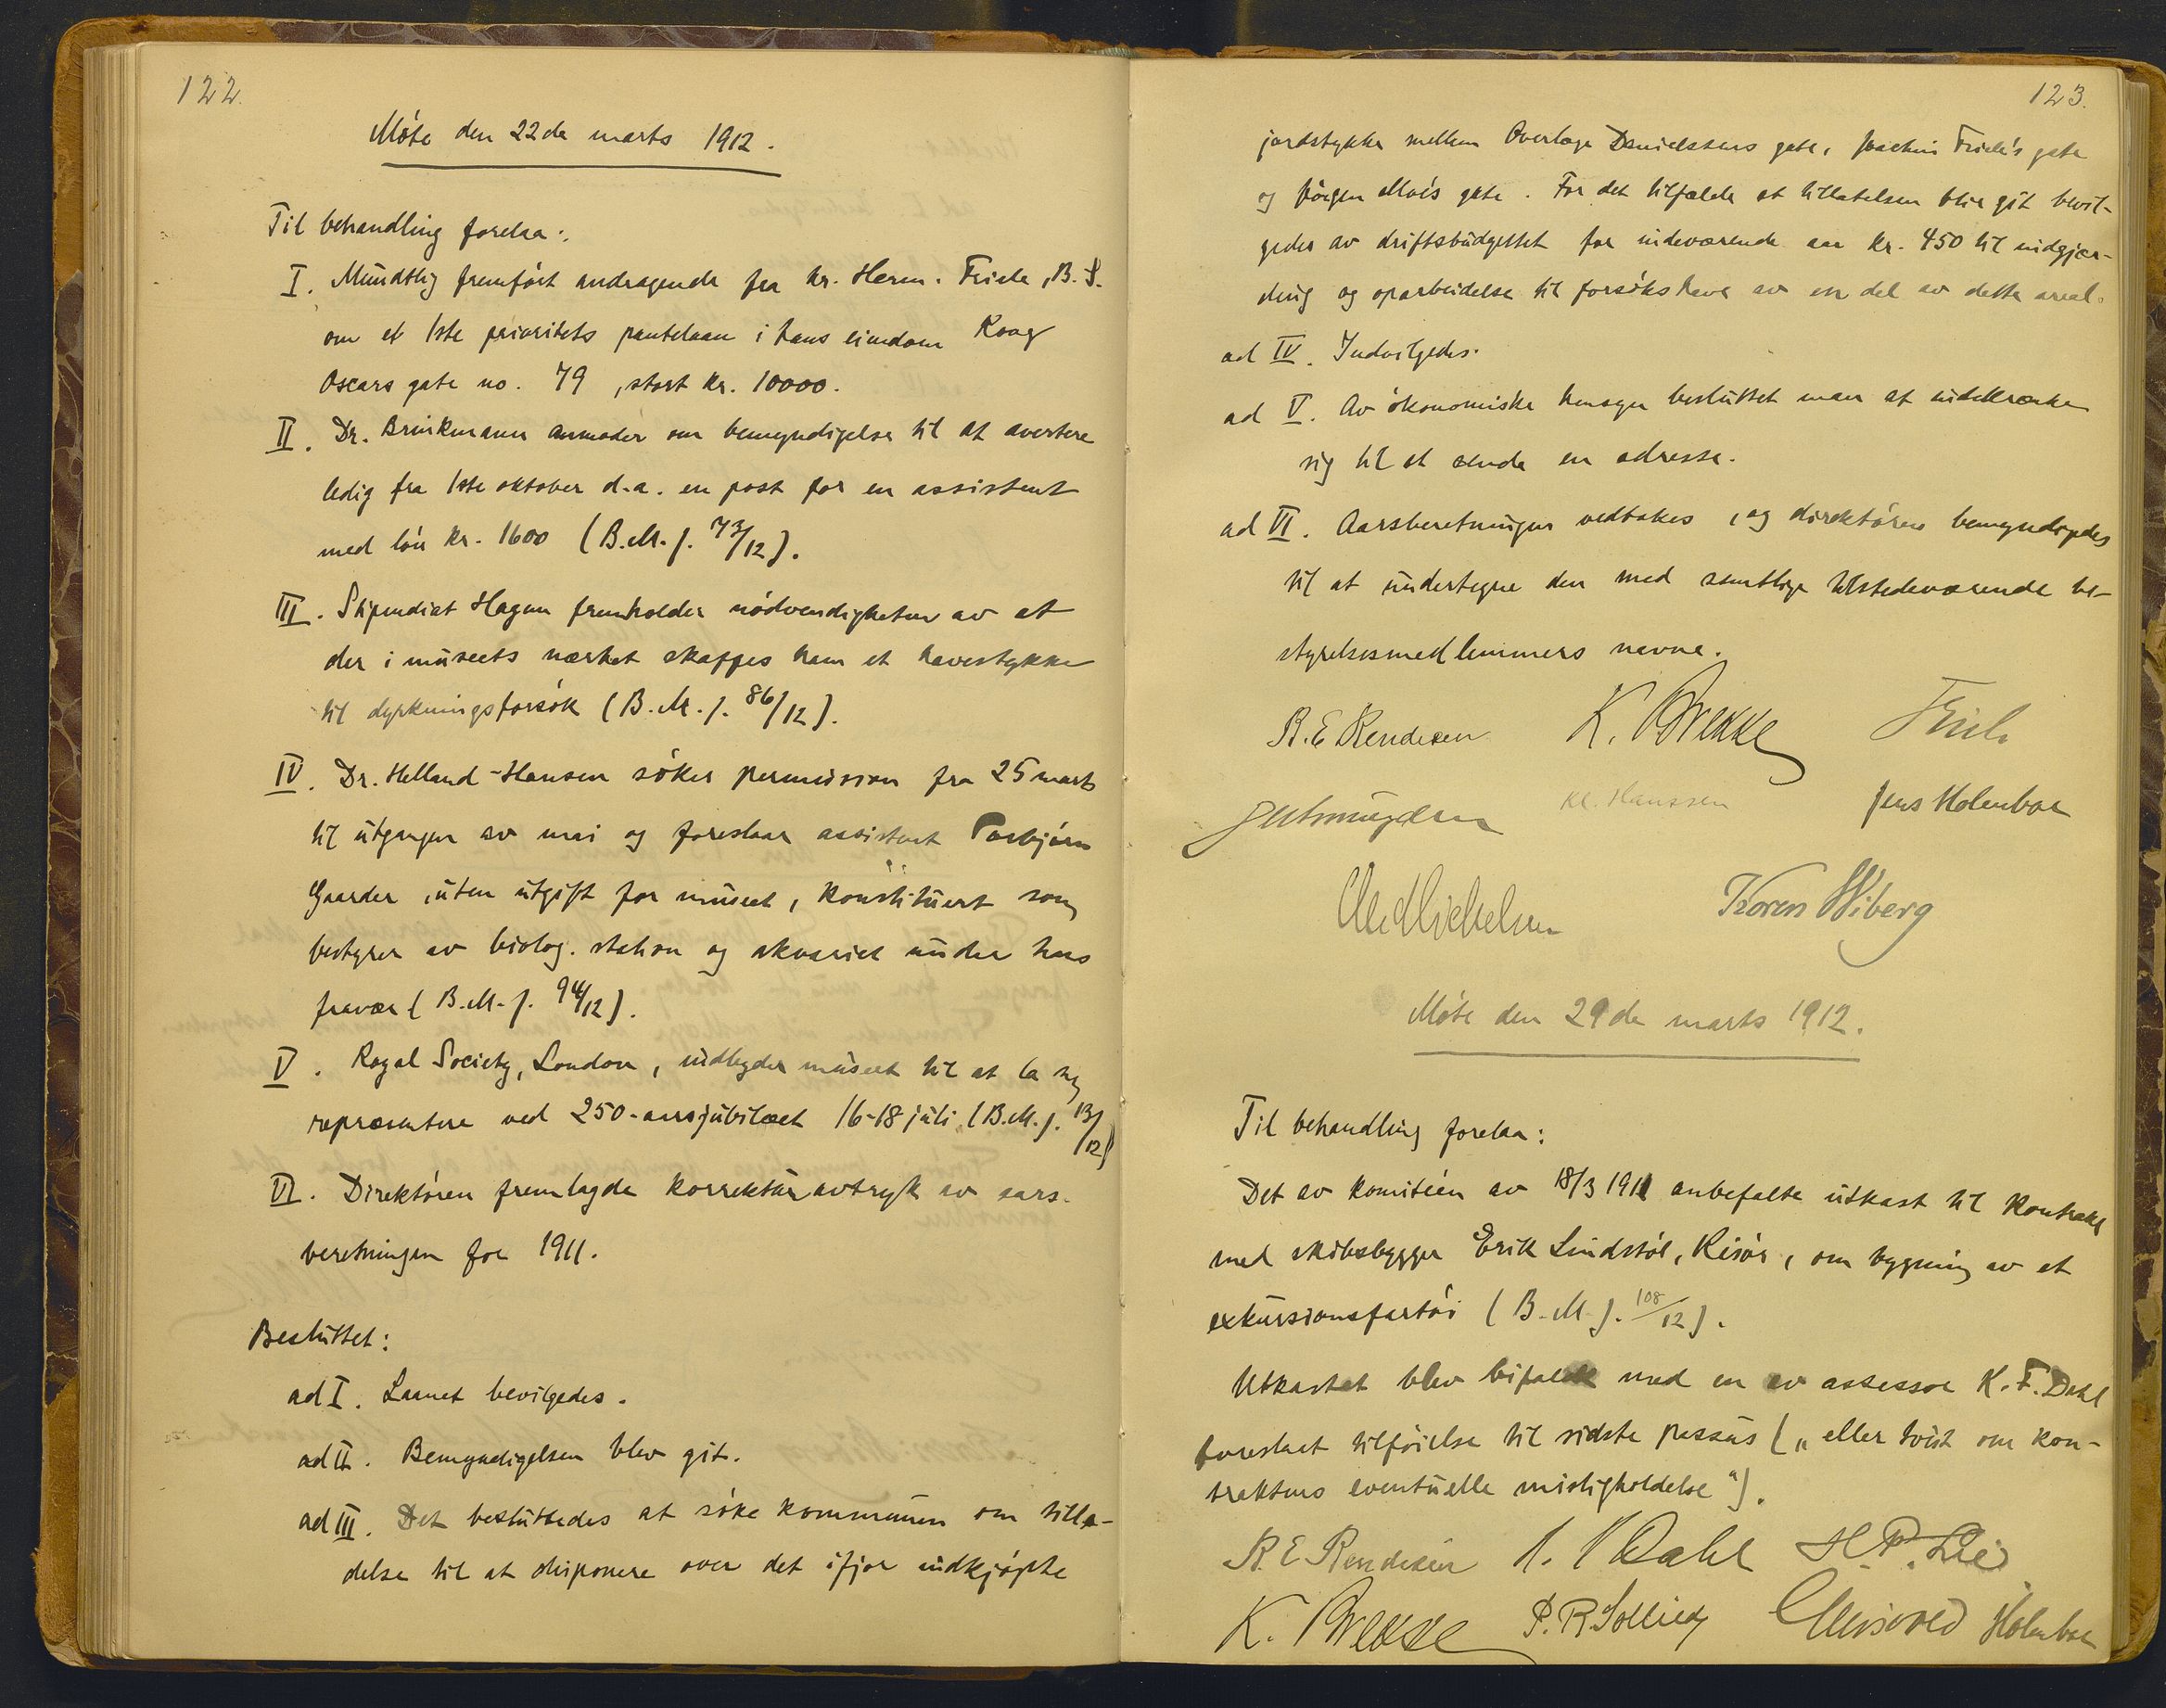 122.
Møte den 22de marts 1912.
Til behandling forelaa:
I. Mundtlig fremført andragende fra hr. Herm. Friele, B. S.
om et 1ste prioritets pantelaan i hans eiendom Kong
Oscars gate no. 79, stort kr. 10000.
II. Dr. Brinkmann anmoder om bemyndigelse til at avertere
ledig fra 1ste oktober d.a. en post for en assistent
med løn kr. 1600 (B.M.j. 73/12).
III. Stipendiat Hagem fremholder nødvendigheten av at
der i museets nærhet skaffes ham et havestykke
til dyrkningsforsøk (B.M.j. 86/12).
IV. Dr. Helland-Hansen søker permission fra 25 marts
til utgangen av mai og foreslaar assistent Torbjørn
Gaarder, uten utgift for museet, konstituert som
bestyrer av biolog. station og akvariet under hans
fravær (B.M.j. 94/12).
V. Royal Society, London, indbyder museet til at la sig
repræsentere ved 250-aarsjubilæet 16-18 juli (B.M.j. 13/12)
VI. Direktøren fremlagde korrekturavtryk av aars-
beretningen for 1911.
Besluttet:
ad I. Laanet bevilgedes.
ad II. Bemyndigelsen blev git.
ad III. Det besluttedes at søke kommunen om tilla-
delse til at disponere over det ifjor indkjøpte
123.
jordstykke mellem Overlæge Danielssens gate, Joachim Friele's gate
og Jørgen Moe's gate. For det tilfælde at tillatelsen blir git bevil-
gedes av driftsbudgettet for indeværende aar kr. 450 til indgjær-
ding og oparbeidelse til forsøkshave av en del av dette areal.
ad IV. Indvilgedes.
ad V. Av økonomiske hensyn besluttet man at indskrænke
sig til at sende en adresse.
ad VI. Aarsberetningen vedtokes, og direktøren bemyndigedes
til at undertegne den med samtlige tilstedeværende be-
styrelsesmedlemmers navne.
R. E. Rendesen K. Brekke Friele
Kl. Hanssen Jens Holmboe
Chr Michelsen Koren Wiberg
Møte den 29de marts 1912.
Til behandling forelaa:
Det av komitéen av 18/3 1911 anbefalte utkast til kontrakt
med skibsbygger Erik Lindstøl, Risør, om bygning av et
exkursionsfartøi (B.M.j. 108/12).
Utkastet blev bifaldt med en av assessor K. F. Dahl
foreslaat tilføielse til sidste passus („eller tvist om kon-
traktens eventuelle misligholdelse").
R. E. Rendesen Dahl H. P. Lie
K. Brekke P. R. Sollied Holmboe